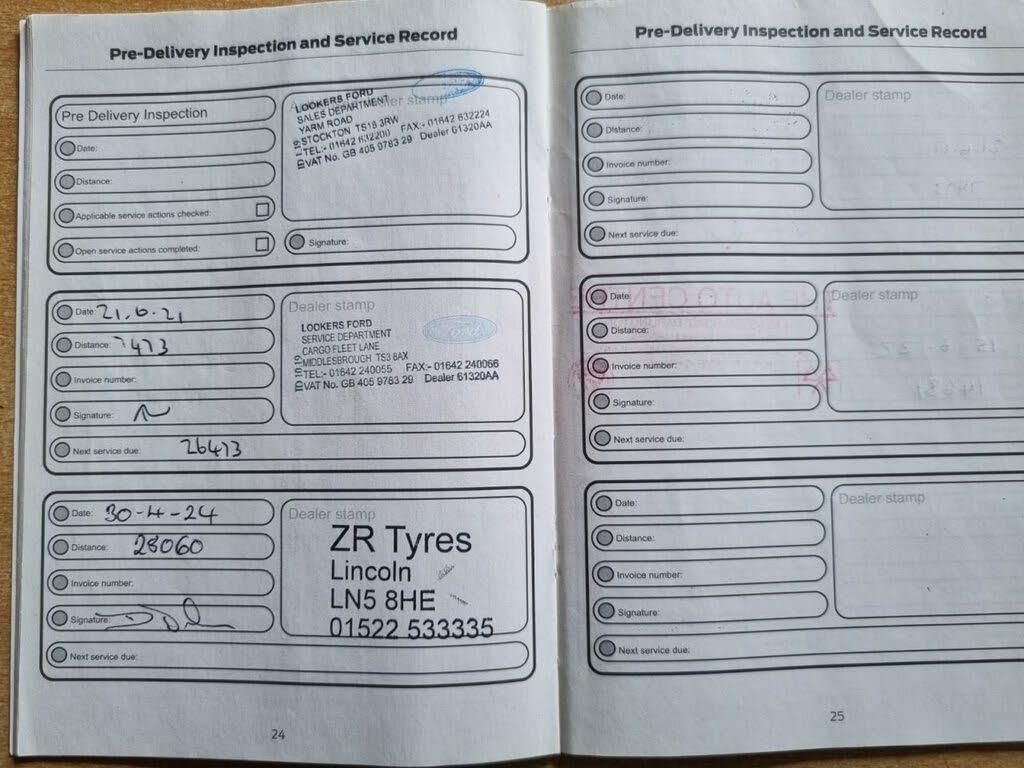 Pre-Delivery Inspection and Service Record
Pre Delivery Inspection
Date:
Distance:
Applicable service actions checked:
Open service actions completed:
LOOKERS FORD
SALES DEPARTMENT
YARM ROAD
STOCKTON TS18 3RW
TEL:- 01642 632200 FAX:- 01642 632224
VAT No. GB 405 9783 29 Dealer 61320AA
Signature:
Date: 21.6.21
Distance: 7473
Invoice number:
Signature:
Next service due: 26473
Dealer stamp
LOOKERS FORD
SERVICE DEPARTMENT
CARGO FLEET LANE
MIDDLESBROUGH TS3 8AX
TEL:- 01642 240055 FAX:- 01642 240066
VAT No. GB 405 9783 29 Dealer 61320AA
Date: 30-4-24
Distance: 28060
Invoice number:
Signature:
Next service due:
Dealer stamp
ZR Tyres
Lincoln
LN5 8HE
01522 533335
24
Pre-Delivery Inspection and Service Record
Date:
Distance:
Invoice number:
Signature:
Next service due:
Dealer stamp
Date:
Distance:
Invoice number:
Signature:
Next service due:
Dealer stamp
Date:
Distance:
Invoice number:
Signature:
Next service due:
Dealer stamp
25